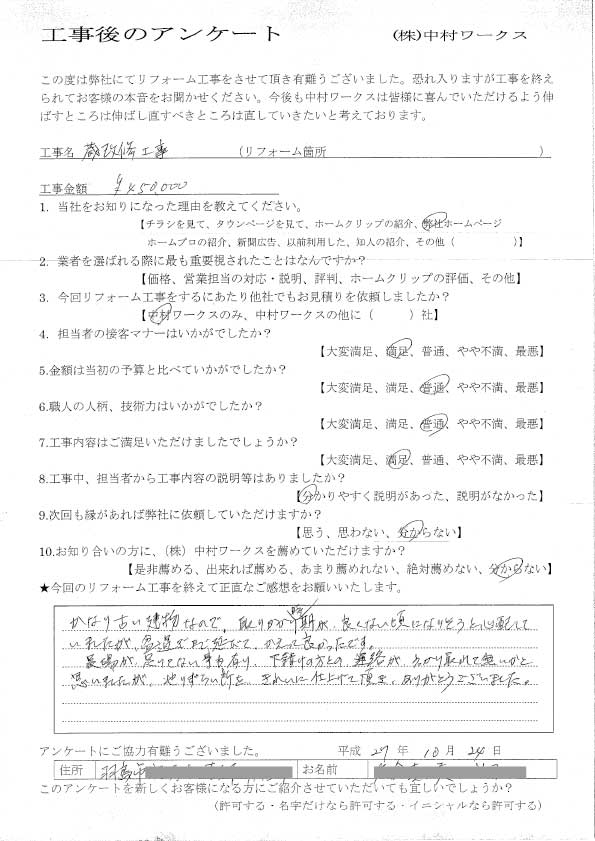 工事後のアンケート (株)中村ワークス
この度は弊社にてリフォーム工事をさせて頂き有難うございました。恐れ入りますが工事を終え
られてお客様の本音をお聞かせください。今後も中村ワークスは皆様に喜んでいただけるよう伸
ばすところは伸ばし直すべきところは直していきたいと考えております。
工事名 蔵改修工事 (リフォーム箇所 )
工事金額 ¥450,000
1. 当社をお知りになった理由を教えてください。
【チラシを見て、タウンページを見て、ホームクリップの紹介、弊社ホームページ
ホームプロの紹介、新聞広告、以前利用した、知人の紹介、その他( )】
2. 業者を選ばれる際に最も重要視されたことはなんですか?
【価格、営業担当の対応・説明、評判、ホームクリップの評価、その他】
3. 今回リフォーム工事をするにあたり他社でもお見積りを依頼しましたか?
【中村ワークスのみ、中村ワークスの他に( )社】
4. 担当者の接客マナーはいかがでしたか?
【大変満足、満足、普通、やや不満、最悪】
5.金額は当初の予算と比べていかがでしたか?
【大変満足、満足、普通、やや不満、最悪】
6.職人の人柄、技術力はいかがでしたか?
【大変満足、満足、普通、やや不満、最悪】
7.工事内容はご満足いただけましたでしょうか?
【大変満足、満足、普通、やや不満、最悪】
8.工事中、担当者から工事内容の説明等はありましたか?
【分かりやすく説明があった、説明がなかった】
9.次回も縁があれば弊社に依頼していただけますか?
【思う、思わない、分からない】
10.お知り合いの方に、(株)中村ワークスを薦めていただけますか?
【是非薦める、出来れば薦める、あまり薦めれない、絶対薦めない、分からない】
★今回のリフォーム工事を終えて正直なご感想をお願いいたします。
かなり古い建物なので、取りかかり時期が、良くない頃になりそうと心配して
いましたが、まで延びて、かえって良かったです。
足場が、足りてない事も有り、下請けの方との連絡が、取れて無いかと
思いましたが、やりずらい所を、きれいに仕上げて頂き、ありがとうございました。
アンケートにご協力有難うございました。 平成 27 年 10 月 24 日
住所 羽島市 お名前
このアンケートを新しくお客様になる方にご紹介させていただいても宜しいでしょうか?
(許可する・名字だけなら許可する・イニシャルなら許可する)